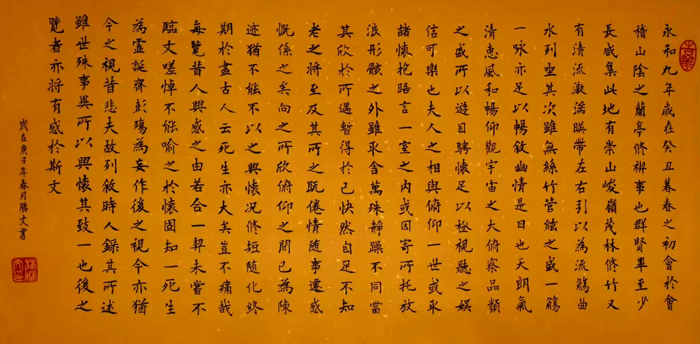 永和九年歲在癸丑暮春之初會於會
稽山陰之蘭亭修稧事也群賢畢至少
長咸集此地有崇山峻嶺茂林修竹又
有清流激湍暎帶左右引以為流觴曲
水列坐其次雖無絲竹管絃之盛一觴
一咏亦足以暢敘幽情是日也天朗氣
清惠風和暢仰觀宇宙之大俯察品類
之盛所以遊目騁懷足以極視聽之娛
信可樂也夫人之相與俯仰一世或取
諸懷抱晤言一室之內或因寄所托放
浪形骸之外雖取舍萬殊靜躁不同當
其欣於所遇暫得於己快然自足不知
老之將至及其所之既倦情隨事遷感
慨係之矣向之所欣俯仰之間已為陳
迹猶不能不以之興懷況修短隨化終
期於盡古人云死生亦大矣豈不痛哉
每覽昔人興感之由若合一契未嘗不
臨文嗟悼不能喻之於懷固知一死生
為虛誕齊彭殤為妄作後之視今亦猶
今之視昔悲夫故列敘時人錄其所述
雖世殊事異所以興懷其致一也後之
覽者亦將有感於斯文
歲在庚子年春月勝文書